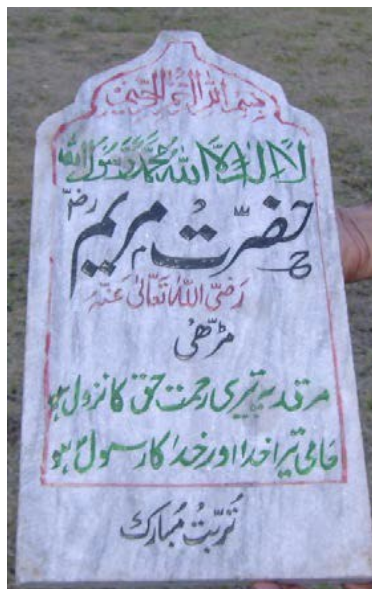 بسم اللہ الرحمن الرحیم
لا الہ الا اللہ محمد رسول اللہ
حضرت مریم رض
رضی اللہ تعالیٰ عنہ
مڑھی
مرقد پر تیری رحمت حق کا نزول ہو
حامی تیرا خدا اور خدا کا رسول ہو
تربت مبارک